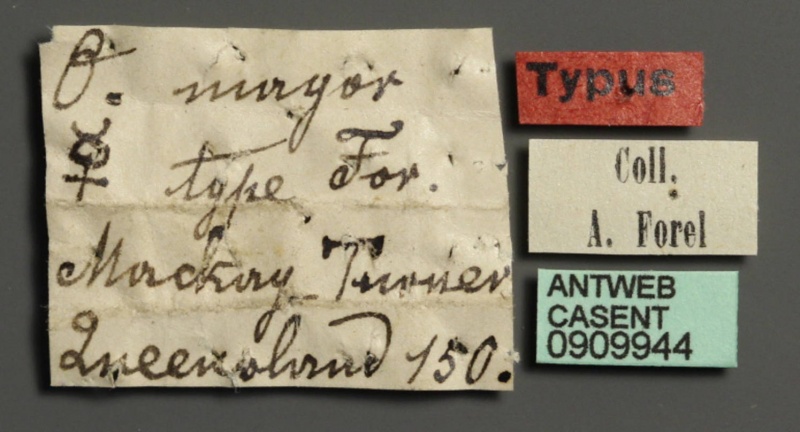 O. mayor
☿ type For.
Mackay Turner
Queensland 150.
Typus
Coll.
A. Forel
ANTWEB
CASENT
0909944